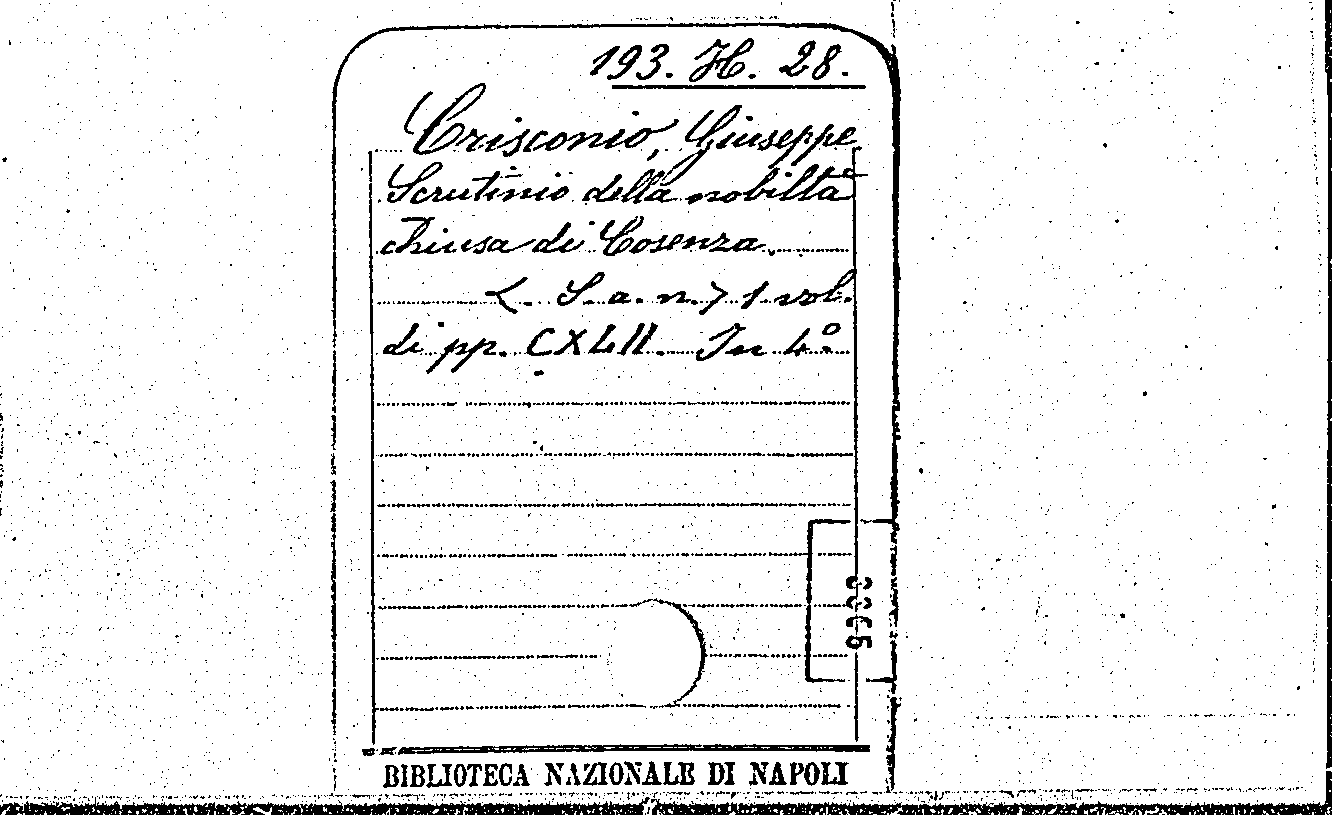 193. H. 28.
Crisconio, Giuseppe
Scrutinio della nobiltà
chiusa di Cosenza.
<. S. a. n.> 1 vol.
di pp. CXLII. In 4º.
BIBLIOTECA NAZIONALE DI NAPOLI